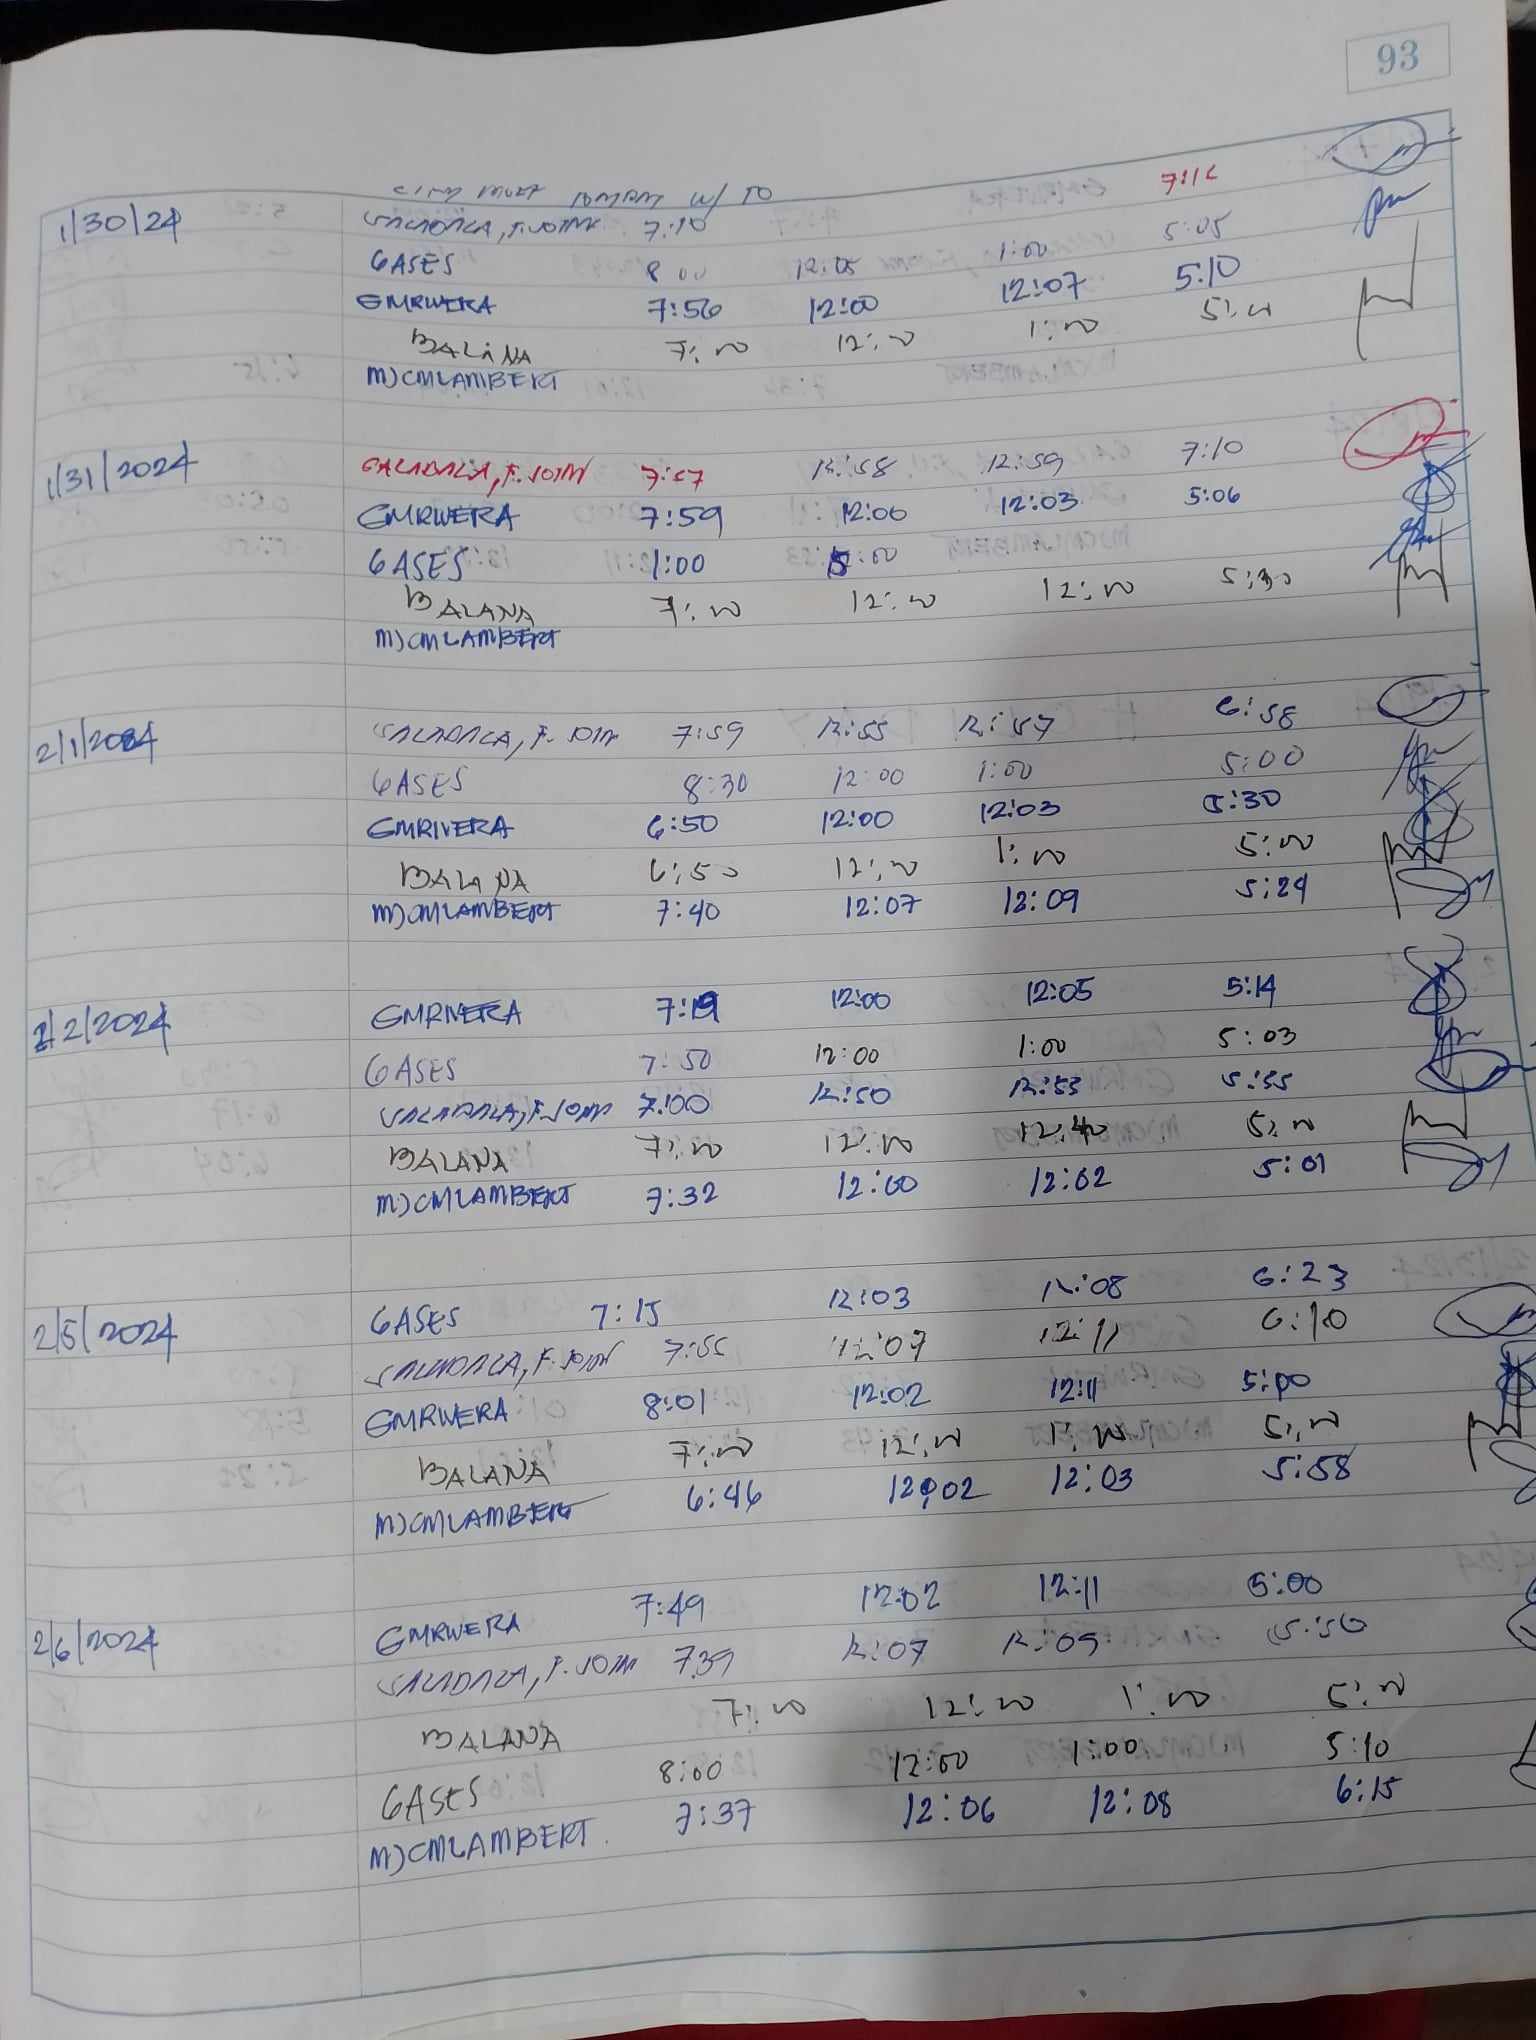 93
1/30/24
W/ TO
7:10
GASES 8 00 12:05 1:00 5:05
GMRIVERA 7:56 12:00 12:07 5:10
BALANA 7:00 12:00 1:00
MJCMLAMBERT
1/31/2024 SALADAGA, F. JOHN 7:57 12:58 12:59 7:10
GMRIVERA 7:59 12:06 12:03 5:06
GASES 1:00 5:00
BALANA 7:00 12:00 12:00 5:30
MJCMLAMBERT
2/1/2024 7:59 12:55 12:57 6:58
GASES 8:30 12:00 1:00 5:00
GMRIVERA 6:50 12:00 12:03 5:30
BALANA 6:50 12:00 1:00 5:00
MJCMLAMBERT 7:40 12:07 12:09 5:29
2/2/2024 GMRIVERA 7:19 12:00 12:05 5:14
GASES 7:50 12:00 1:00 5:03
7:00 12:50 12:53 5:55
BALANA 7:00 12:00 12:40 5:00
MJCMLAMBERT 7:32 12:00 12:02 5:01
2/5/2024 GASES 7:15 12:03 12:08 6:23
7:55 12:07 12:11 6:10
GMRIVERA 8:01 12:02 12:11 5:00
BALANA 7:00 12:00 1:00 5:00
MJCMLAMBERT 6:46 12:02 12:03 5:58
2/6/2024 GMRIVERA 7:49 12:02 12:11 5:00
7:39 12:07 12:09 5:50
BALANA 7:00 12:00 1:00 5:00
GASES 8:00 12:00 1:00 5:10
MJCMLAMBERT. 7:37 12:06 12:08 6:15